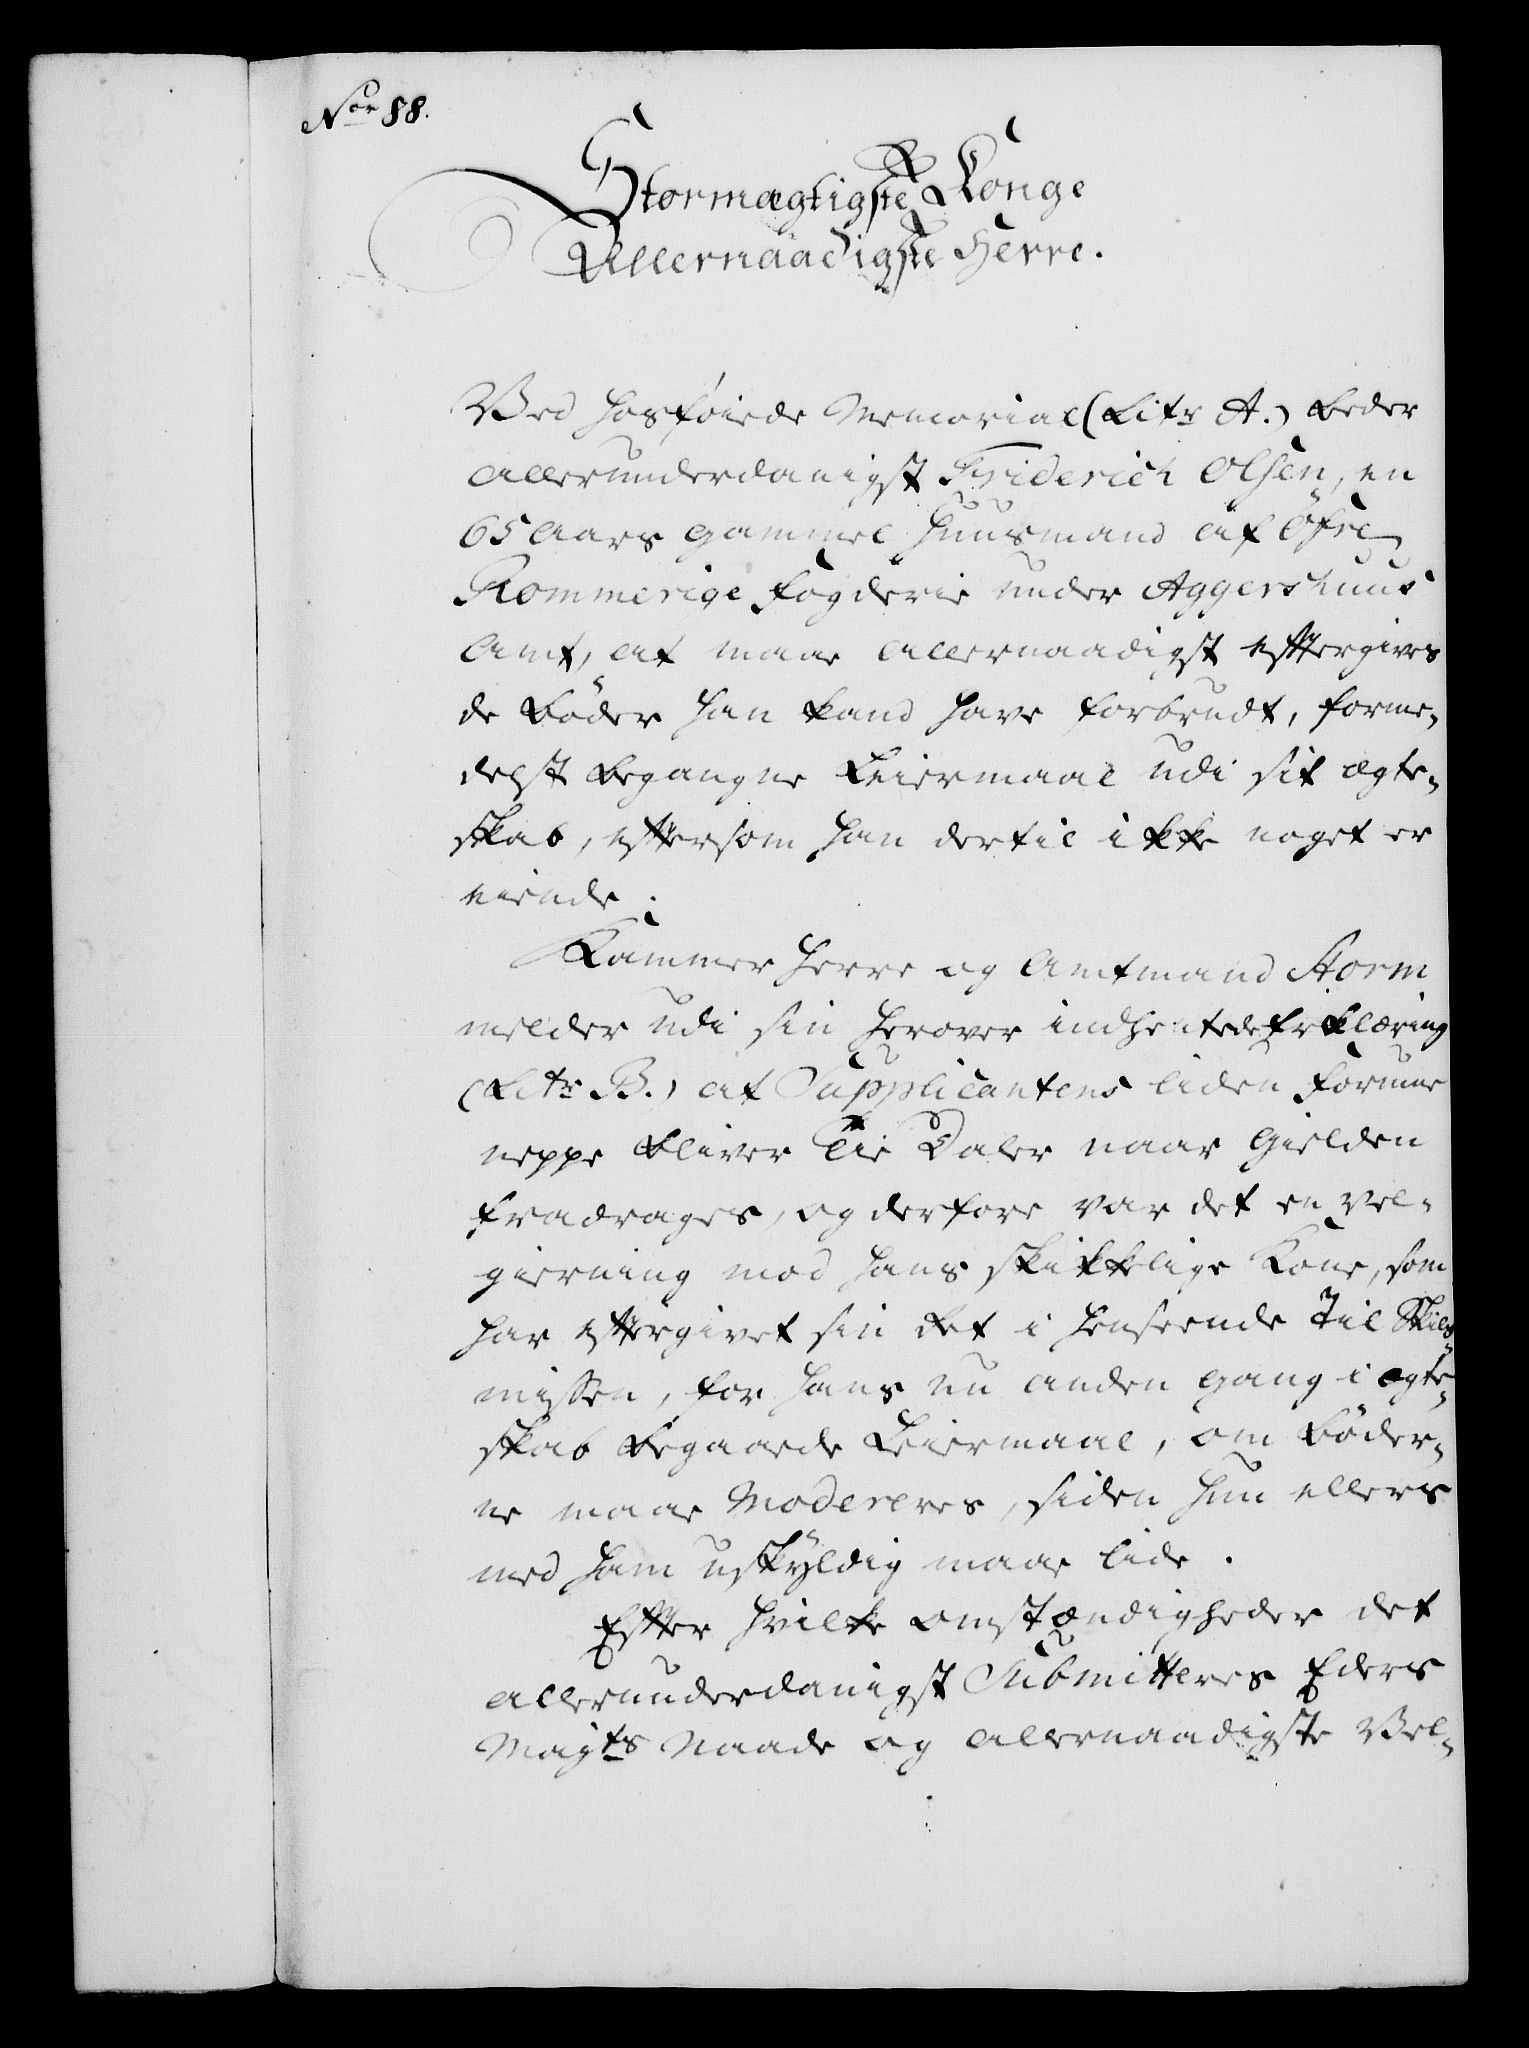 Nor 88.
Stormægtigste Konge
Allernaadigste Herre.
Ved hosføiede Memorial (Litr A.) beder
allerunderdanigst Friderich Olsen, en
65 Aars gammel Huusmand af Öfre
Rommerige Fogderie under Aggershuus
Amt, at maae allernaadigst eftergives
de Bøder han kand have forbrudt, forme,
delst begangne Leiermaal udi sit ægte,
skab, eftersom han dertil ikke noget er
eiende.
Kammer Herre og Amtmand Storm
melder udi sin herover indhentede Erklæring
(Litr B.) at Supplicantens liden Formue
neppe bliver Tie Daler naar Gielden
fradrages, og derfore var det en vel-
gierning mod hans skikkelige Kone, som
har eftergivet sin Ret i henseende Til Skils,
missen, for hans nu anden gang i ægte,
skab begaaede Leiermaal, om Bøder,
ne maae Modereres, siden hun ellers
med ham uskyldig maae lide.
Efter hvilke omstændigheder det
allerunderdanigst Submitteres Eders
Mayts Naade og allernaadigste Vel,